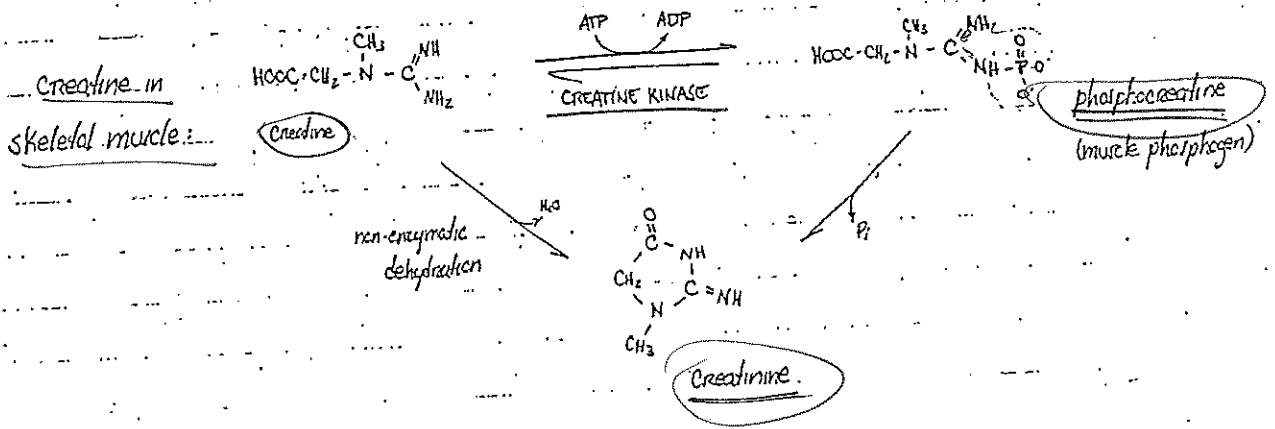 Creatine in
skeletal muscle:
CH3
HOOC-CH2-N-C
NH
NH2
Creatine
ATP
ADP
CREATINE KINASE
CH3
NH2
HOOC-CH2-N-C
NH-P-O
O
O
phosphocreatine
(muscle phosphagen)
non-enzymatic
dehydration
H2O
Pi
O
C
NH
CH2
C=NH
N
CH3
Creatinine.